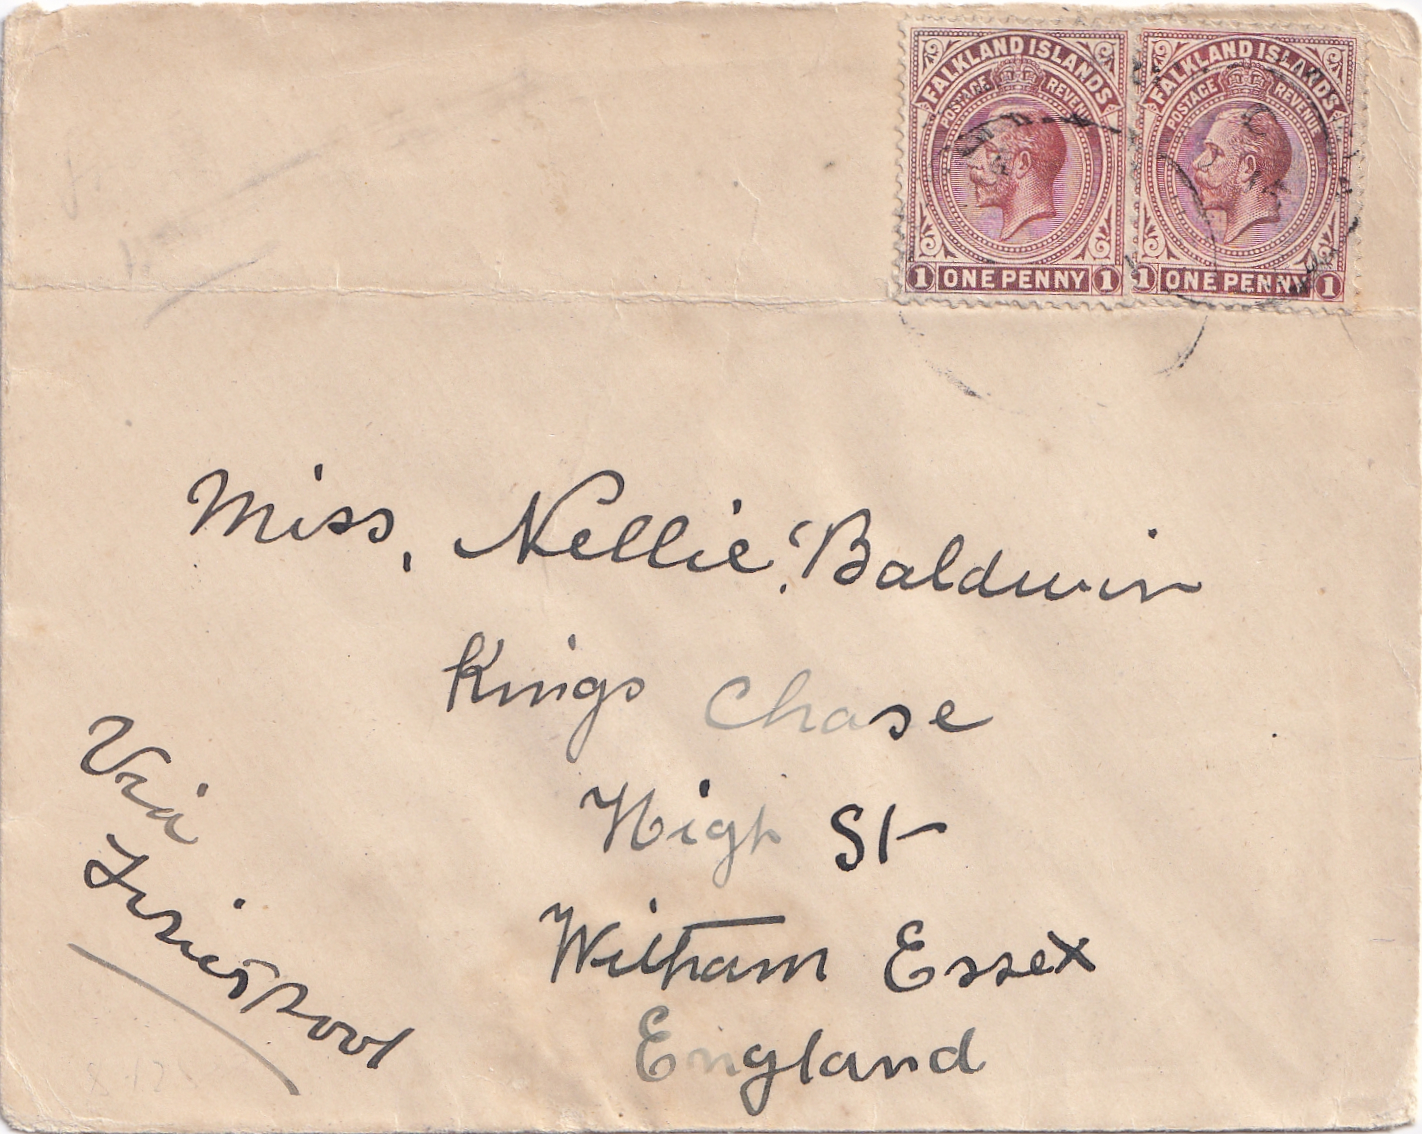 FALKLAND ISLANDS
POSTAGE REVENUE
1 ONE PENNY 1
FALKLAND ISLANDS
POSTAGE REVENUE
1 ONE PENNY 1
Miss, Nellie. Baldwin
Kings Chase
High St
Witham Essex
England
Via